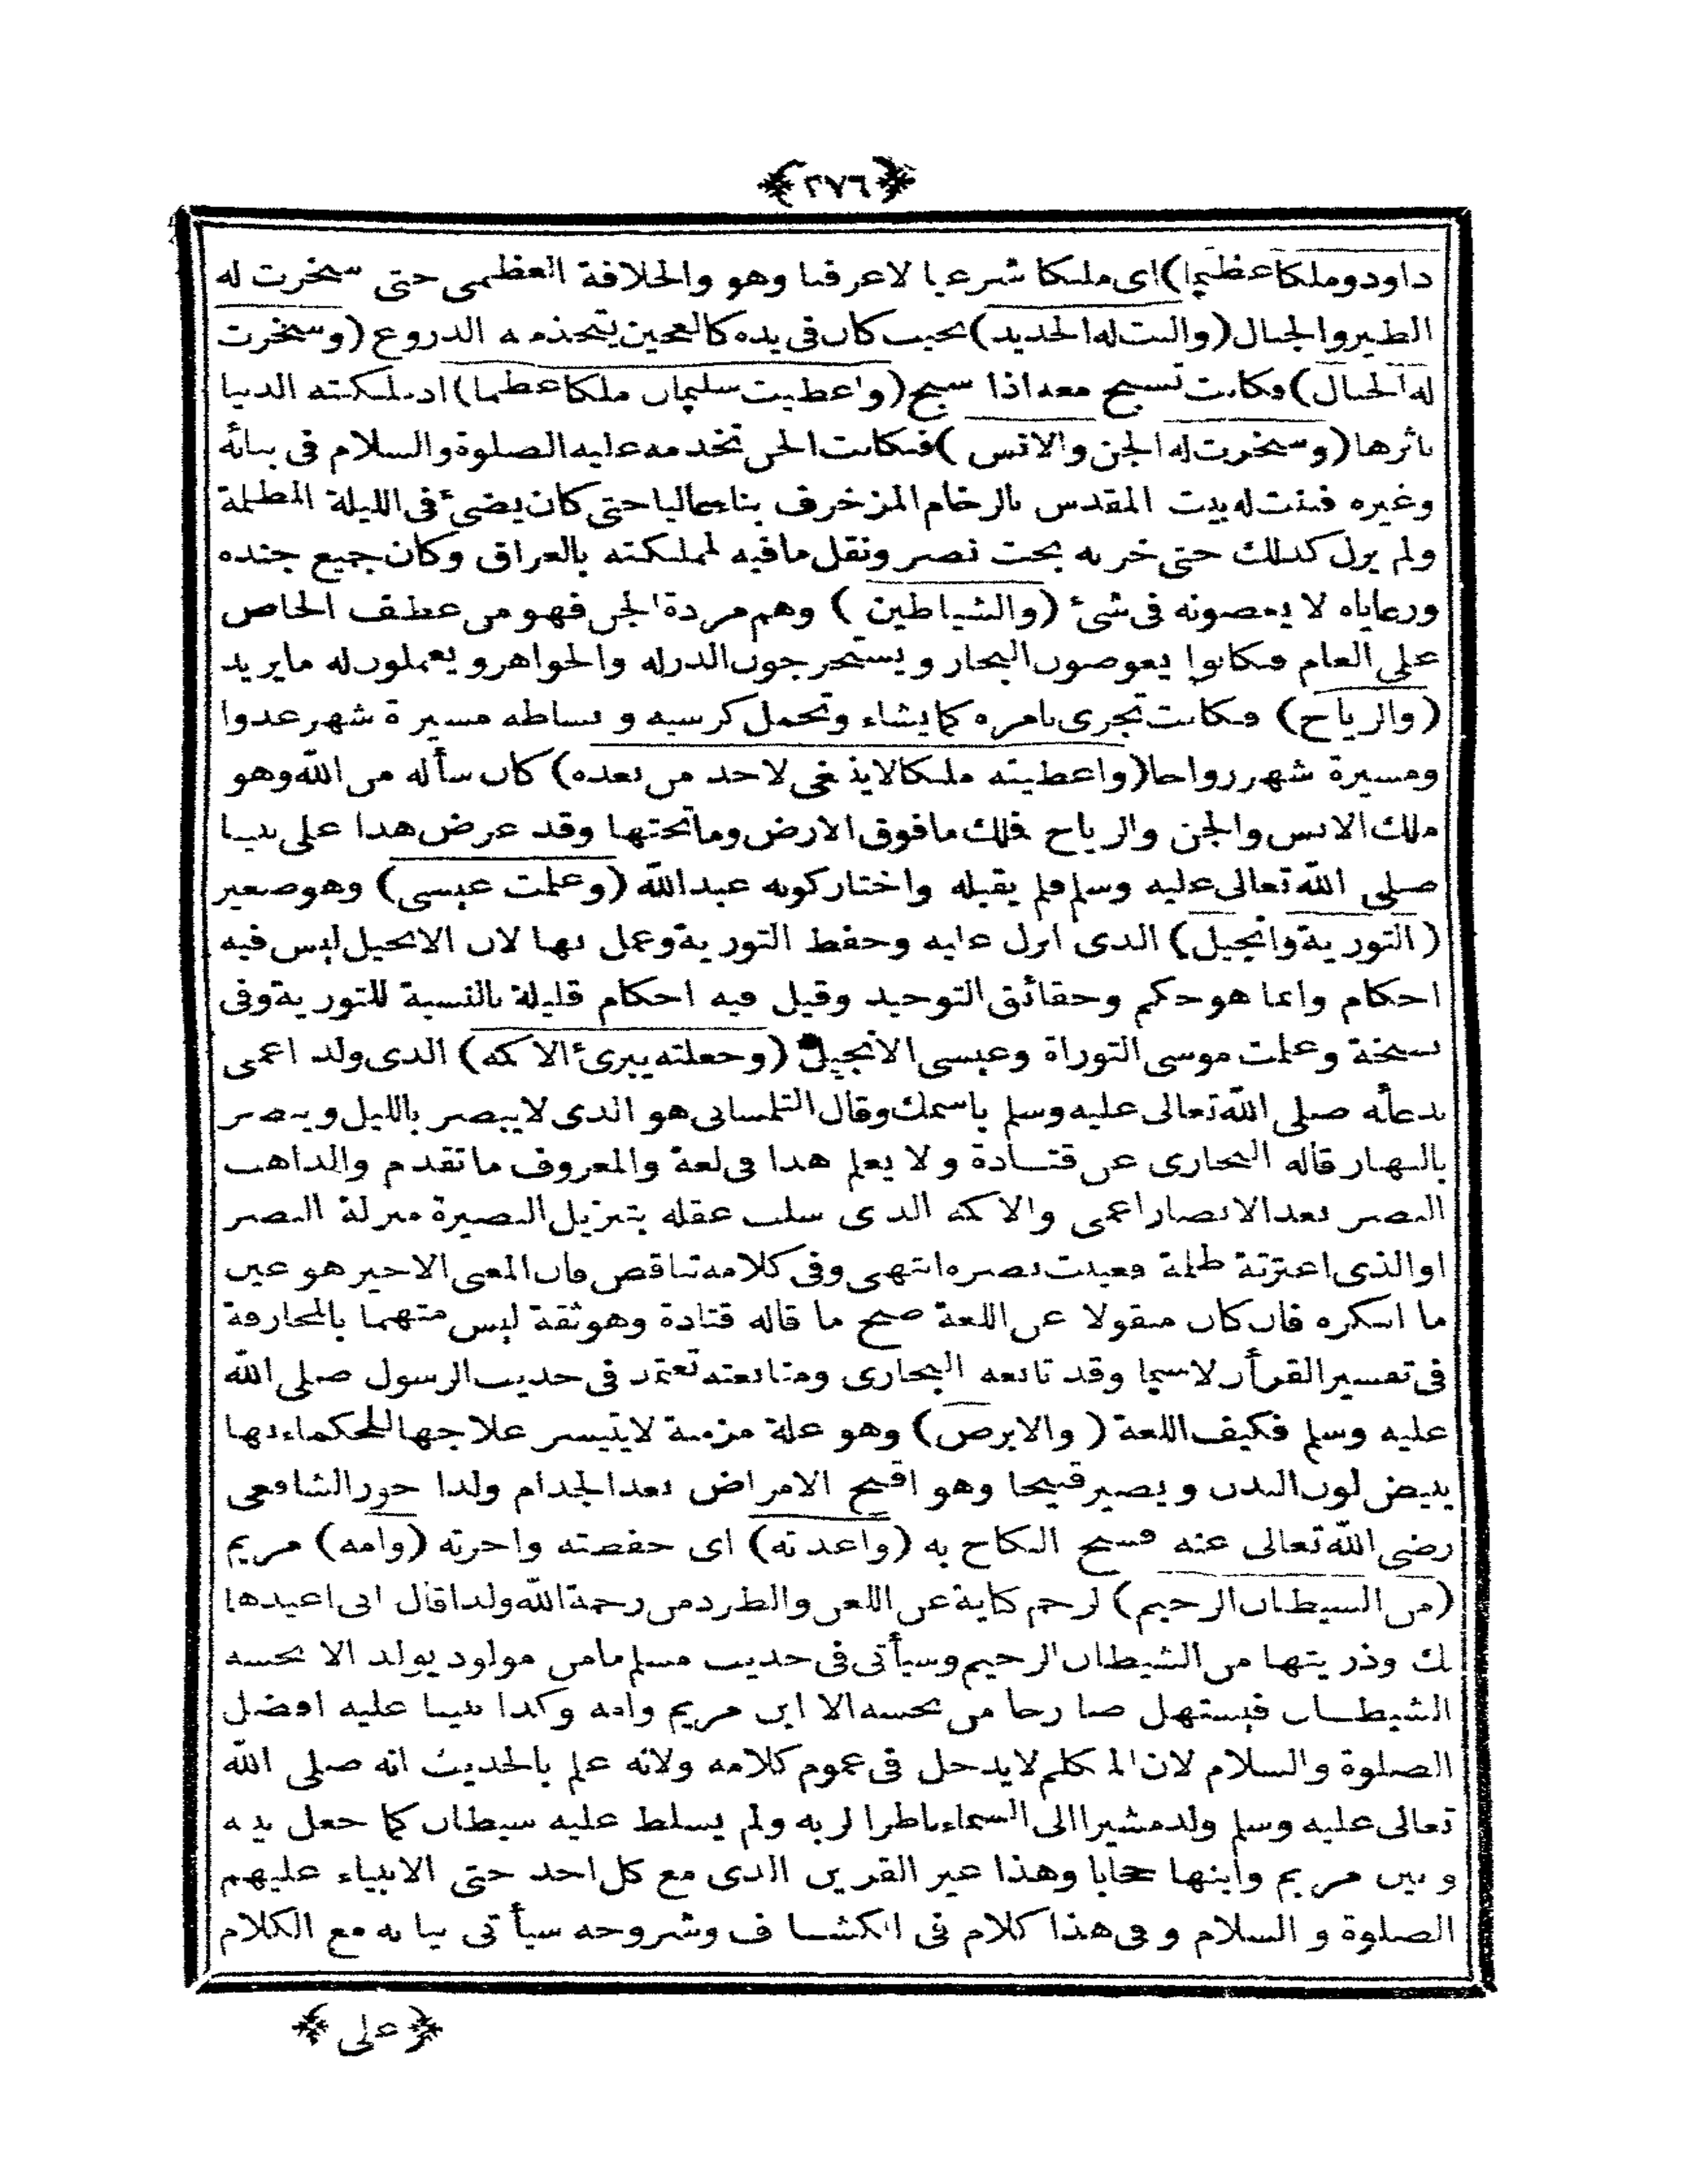 ﴿٢٧٦﴾
داود وملكا عظيما) اى ملكا شرعيا لا عرفيا وهو والخلافة العظمى حتى سخرت له
الطير والجبال (والنت له الحديد) بحيث كان فى يده كالعجين يتخذ منه الدروع (وسخرت
له الجبال) فكانت تسبح معه اذا سبح (واعطيت سليمان ملكا عظيما) اذ ملكته الدنيا
باثرها (وسخرت له الجن والانس) فكانت الجن تخدمه عليه الصلوة والسلام فى بنائه
وغيره فبنت له بيت المقدس بالرخام المزخرف بناء عاليا حتى كان يضئ فى الليلة المظلمة
ولم يزل كذلك حتى خربه بخت نصر ونقل مافيه لمملكته بالعراق وكان جميع جنده
ورعاياه لا يعصونه فى شئ (والشياطين) وهم مردة الجن فهو من عطف الخاص
على العام فكانوا يغوصون البحار ويستخرجون الدر له والجواهر ويعملون له مايريد
(والرياح) فكانت تجرى بامره كما يشاء وتحمل كرسيه وبساطه مسيرة شهر غدوا
ومسيرة شهر رواحا (واعطيته ملكا لاينبغى لاحد من بعده) كان سأله من الله وهو
ملك الانس والجن والرياح فملك مافوق الارض وماتحتها وقد عرض هذا على نبينا
صلى الله تعالى عليه وسلم فلم يقبله واختار كونه عبد الله (وعلمت عيسى) وهو صغير
(التورية وانجيل) الذى انزل عليه وحفظ التورية وعمل بها لان الانجيل ليس فيه
احكام وانما هو حكم وحقائق التوحيد وقيل فيه احكام قليلة بالنسبة للتورية وفى
نسخة وعلمت موسى التوراة وعيسى الانجيل (وجعلته يبرئ الاكمه) الذى ولد اعمى
بدعائه صلى الله تعالى عليه وسلم باسمك وقال التلمسانى هو الذى لا يبصر بالليل ويبصر
بالنهار قاله البخارى عن قتـادة ولا يعلم هذا فى لغة والمعروف ماتقدم والذاهب
البصر بعد الابصار اعمى والاكمه الذى سلب عقله بتنزيل البصيرة منزلة البصر
او الذى اعترته ظلمة فعيبت بصره انتهى وفى كلامه تناقض فان المعنى الاخير هو عين
ما انكره فان كان منقولا عن اللغة صح ما قاله قتادة وهو ثقة ليس متهما بالمجازفة
فى تفسير القرأن لاسيما وقد تابعه البخارى ومتابعته تعتمد فى حديث الرسول صلى الله
عليه وسلم فكيف اللغة (والابرص) وهو علة مزمنة لايتيسر علاجها للحكماء بها
يبيض لون البدن ويصير قبيحا وهو اقبح الامراض بعد الجذام ولذا جوز الشافعى
رضى الله تعالى عنه فسخ النكاح به (واعذته) اى حفظته واجرته (وامه) مريم
(من الشيطان الرجيم) لرجم كناية عن اللعن والطرد من رحمة الله ولذا قال انى اعيذها
بك وذريتها من الشيطان الرجيم وسيأتى فى حديث مسلم مامن مولود يولد الا نخسه
الشيطـان فيستهل صارخا من نخسه الا ابن مريم وامه وكذا نبينا عليه افضل
الصلوة والسلام لان المتكلم لايدخل فى عموم كلامه ولانه علم بالحديث انه صلى الله
تعالى عليه وسلم ولد مشيرا الى السماء ناظرا لربه ولم يسلط عليه شيطان كما جعل بينه
وبين مريم وابنها حجابا وهذا غير القرين الذى مع كل احد حتى الانبياء عليهم
الصلوة والسلام وفى هذا كلام فى الكشـاف وشروحه سيأتى بيانه مع الكلام
﴿على﴾